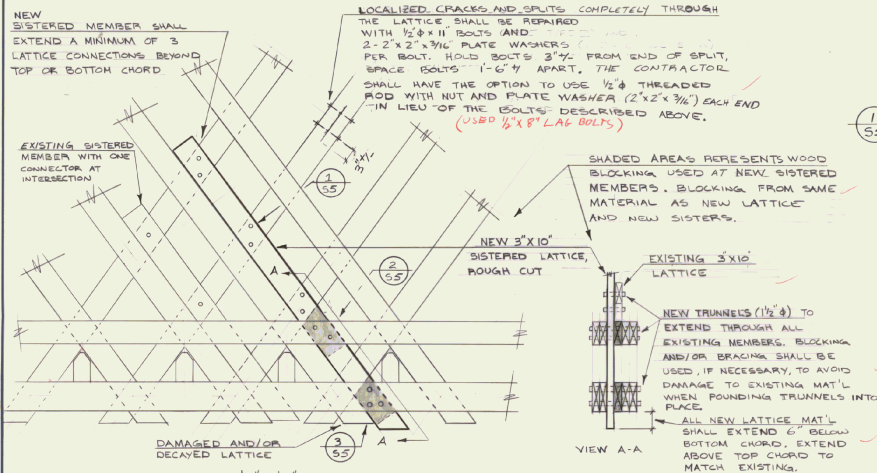 NEW
SISTERED MEMBER SHALL
EXTEND A MINIMUM OF 3
LATTICE CONNECTIONS BEYOND
TOP OR BOTTOM CHORD
LOCALIZED CRACKS AND SPLITS COMPLETELY THROUGH
THE LATTICE SHALL BE REPAIRED
WITH 1/2"Φ x 11" BOLTS (AND
2-2"x2"x3/16" PLATE WASHERS (
PER BOLT. HOLD BOLTS 3"+/- FROM END OF SPLIT,
SPACE BOLTS 1'-6"+/- APART. THE CONTRACTOR
SHALL HAVE THE OPTION TO USE 1/2"Φ THREADED
ROD WITH NUT AND PLATE WASHER (2"x2"x3/16") EACH END
IN LIEU OF THE BOLTS DESCRIBED ABOVE.
(USED 1/2"x8" LAG BOLTS)
3"+/-
1
S5
EXISTING SISTERED
MEMBER WITH ONE
CONNECTOR AT
INTERSECTION
1
S5
SHADED AREAS REPRESENTS WOOD
BLOCKING USED AT NEW SISTERED
MEMBERS. BLOCKING FROM SAME
MATERIAL AS NEW LATTICE
AND NEW SISTERS.
NEW 3"X10"
SISTERED LATTICE,
ROUGH CUT
A
2
S5
EXISTING 3"X10"
LATTICE
NEW TRUNNELS (1 1/2"Φ) TO
EXTEND THROUGH ALL
EXISTING MEMBERS. BLOCKING
AND/OR BRACING SHALL BE
USED, IF NECESSARY, TO AVOID
DAMAGE TO EXISTING MAT'L
WHEN POUNDING TRUNNELS INTO
PLACE.
ALL NEW LATTICE MAT'L
SHALL EXTEND 6" BELOW
BOTTOM CHORD, EXTEND
ABOVE TOP CHORD TO
MATCH EXISTING.
DAMAGED AND/OR
DECAYED LATTICE
3
S5
A
VIEW A-A